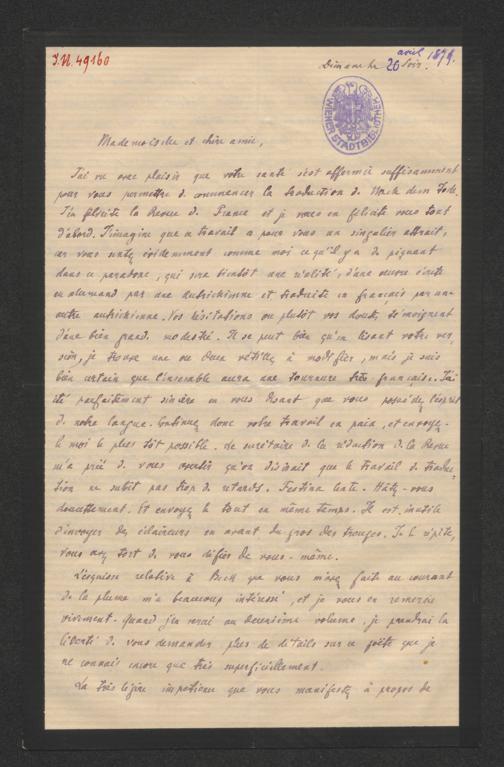 J.N. 49160
avril 1879.
Dimanche 20 Soir.
WIENER STADTBIBLIOTHEK
Mademoiselle et chère amie,
J'ai vu avec plaisir que votre santé s'est affermie suffisamment
pour vous permettre de commencer la traduction de Nach dem Tode.
J'en félicite la Revue de France et je vous en félicite vous tout
d'abord. J'imagine que ce travail a pour vous un singulier attrait,
car vous sentez évidemment comme moi ce qu'il y a de piquant
dans ce paradoxe, qui sera bientôt une réalité, d'une œuvre écrite
en allemand par une autrichienne et traduite en français par une
autre autrichienne. Vos hésitations ou plutôt vos doutes témoignent
d'une bien grande modestie. Il se peut bien qu'en lisant votre ver-
sion, je trouve une ou deux vétilles à modifier, mais je suis
bien certain que l'ensemble aura une tournure très française. J'ai
été parfaitement sincère en vous disant que vous possédez l'esprit
de notre langue. Continuez donc votre travail en paix, et envoyez-
le moi le plus tôt possible. Le secrétaire de la rédaction de la Revue
m'a prié de vous avertir qu'on désirait que le travail de traduc-
tion ne subît pas trop de retards. Festina lente. Hâtez-vous
doucement. Et envoyez le tout en même temps. Il est inutile
d'envoyer des éclaireurs en avant du gros des troupes. Je le répète,
vous avez tort de vous défier de vous-même.
L'esquisse relative à Beck que vous m'avez faite au courant
de la plume m'a beaucoup intéressé, et je vous en remercie
vivement. Quand j'en serai au deuxième volume, je prendrai la
liberté de vous demander plus de détails sur ce poëte que je
ne connais encore que très superficiellement.
La très légère impatience que vous manifestez à propos de